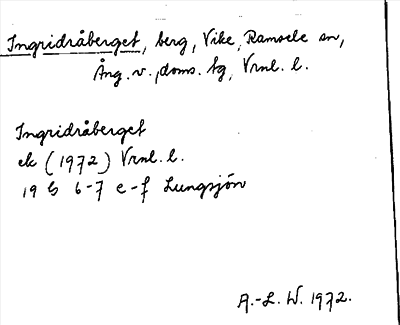 Ingridråberget, berg, Vike, Ramsele sn,
Ång. v., doms. tg, Vrnl. l.
Ingridråberget
ek (1972) Vrnl. l.
19 G 6-7 e-f Lungsjön
A.-L. W. 1972.